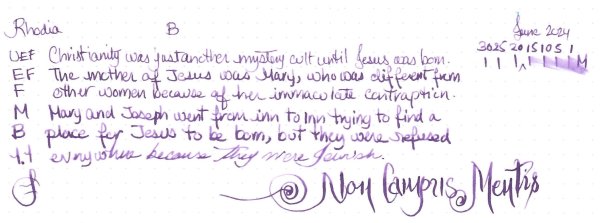 Rhodia B June 2024
30 25 20 15 10 5 1
M
UEF Christianity was just another mystery cult until Jesus was born.
EF The mother of Jesus was Mary, who was different from
F other women because of her immaculate contraption.
M Mary and Joseph went from inn to Inn trying to find a
B place for Jesus to be born, but they were refused
1.1 everywhere because they were Jewish.
f Non Compos Mentis